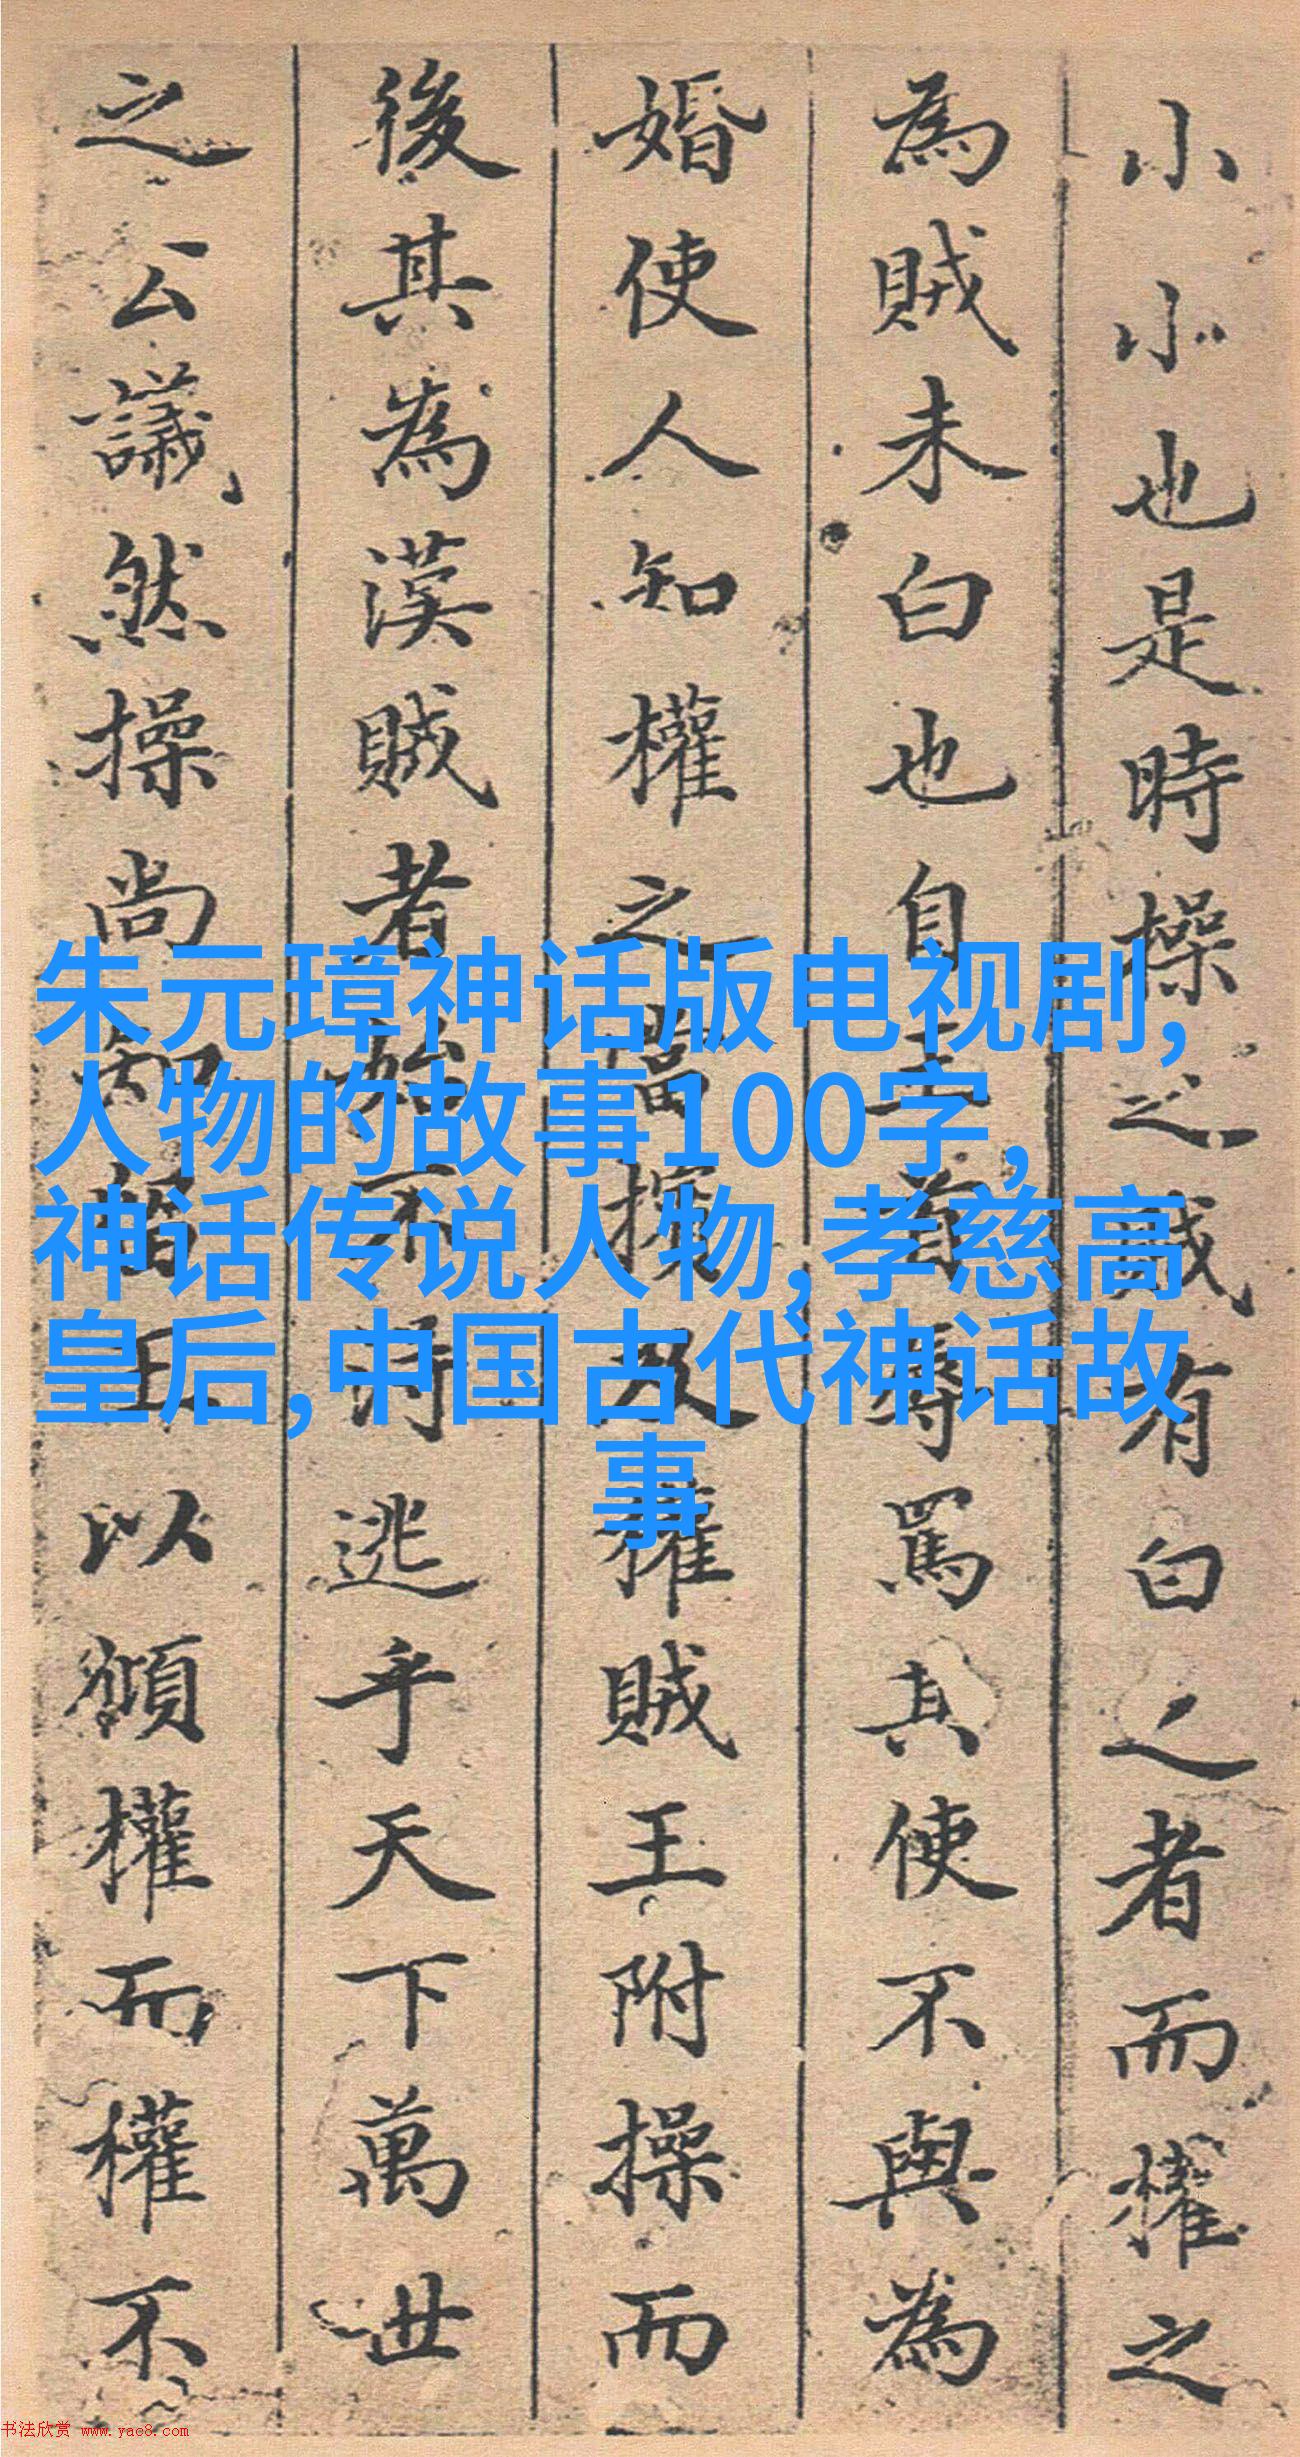 小小也是時操之賊有白之者而權之
為賊未白也自羽罵其使不與為
婚使人知權之當操權賊王附操而
後其為漢賊者始不得逃乎天下萬世
之公議然操尚知以頒權而權不
朱元璋神话版电视剧,
人物的故事100字,
神话传说人物,孝慈高
皇后,中国古代神话故
事
书法欣赏 www.yac8.com